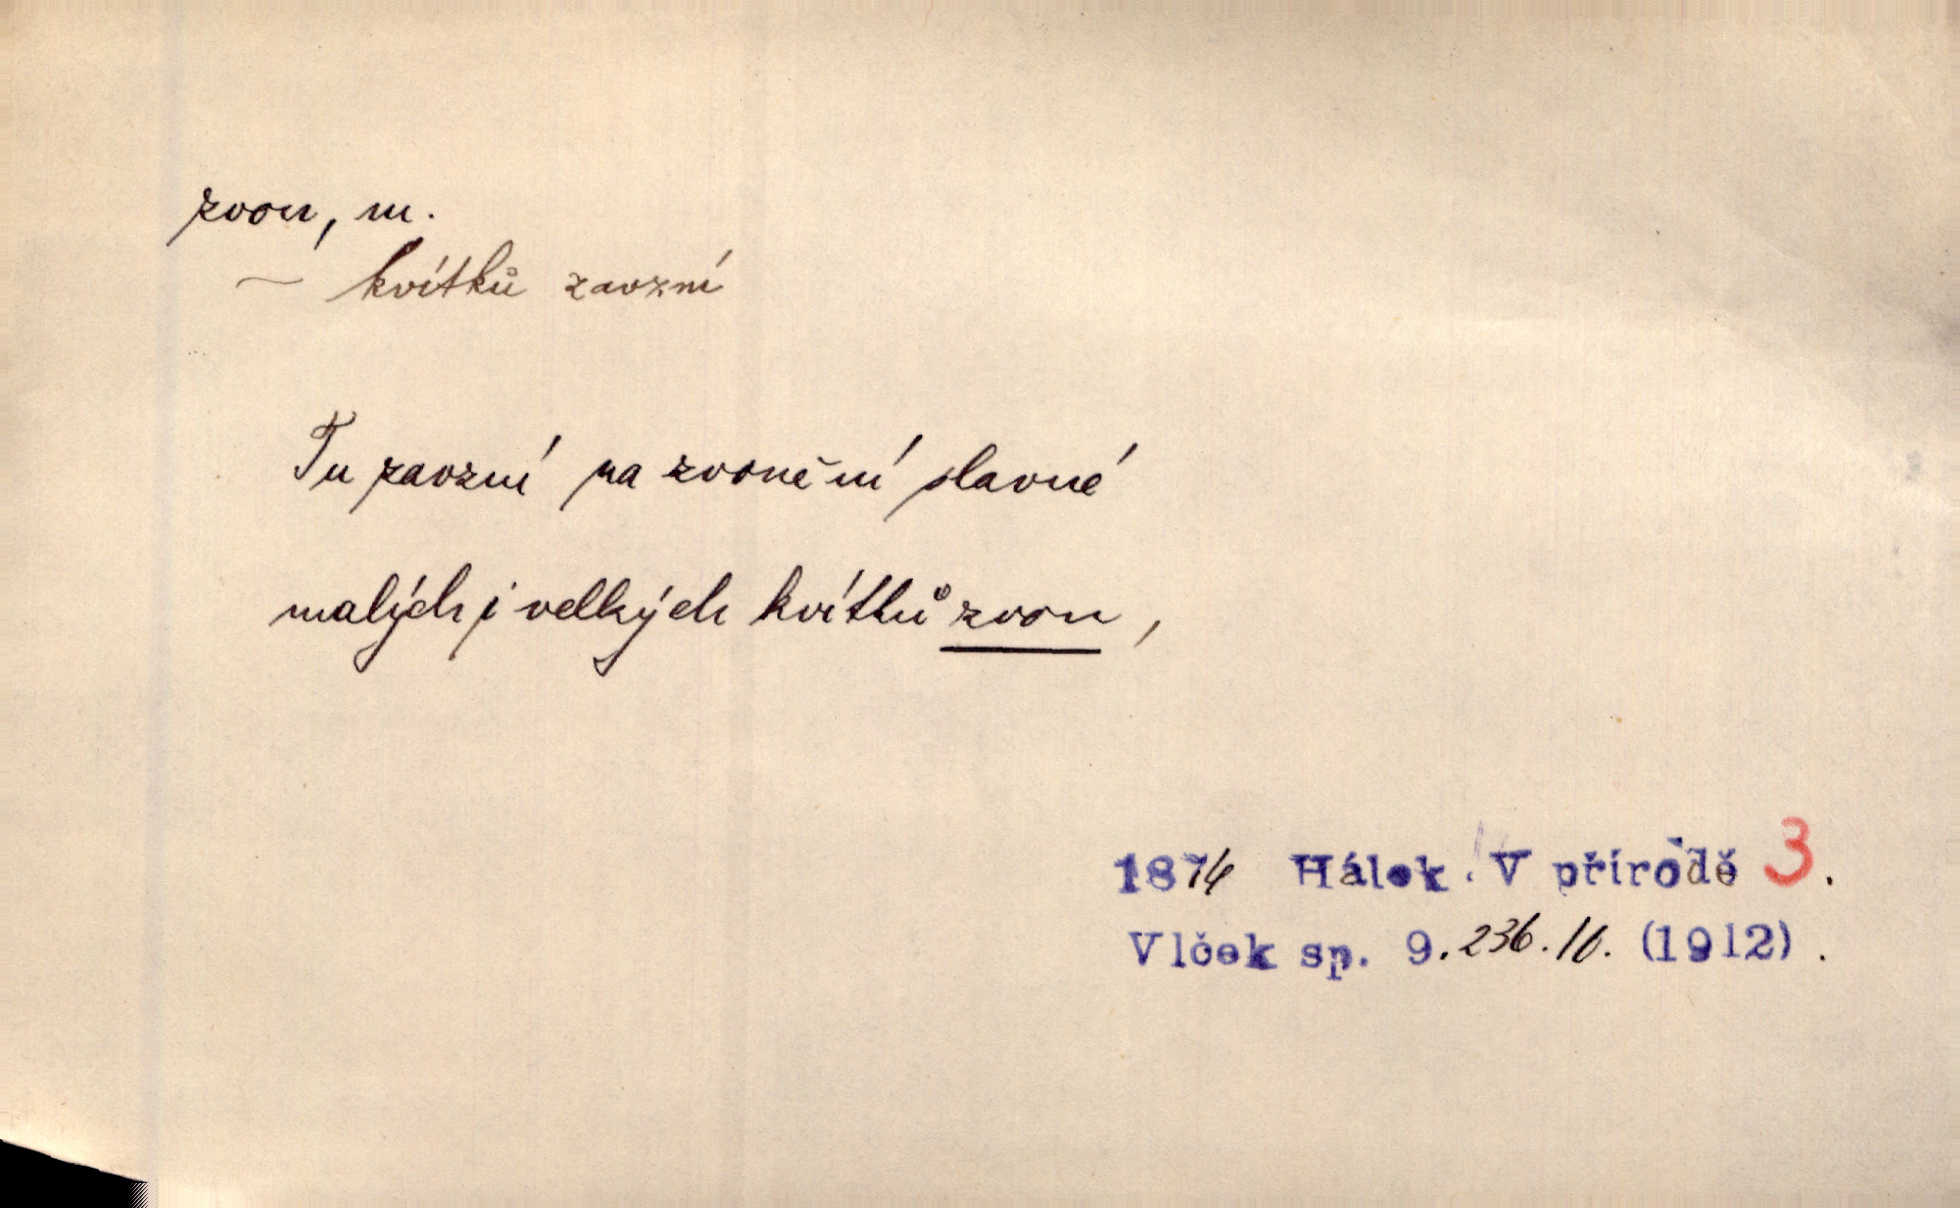 zvon, m.
~ kvítků zavzní
Tu zavzní na zvonění slavné
malých i velkých kvítků zvon,
1874 Hálek. V přírodě 3.
Vlček sp. 9. 236. 10. (1912).